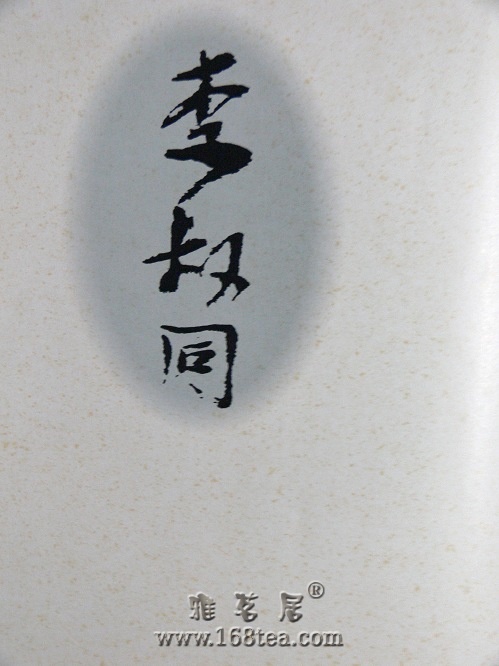 李叔同
雅茗居®
www.168tea.com